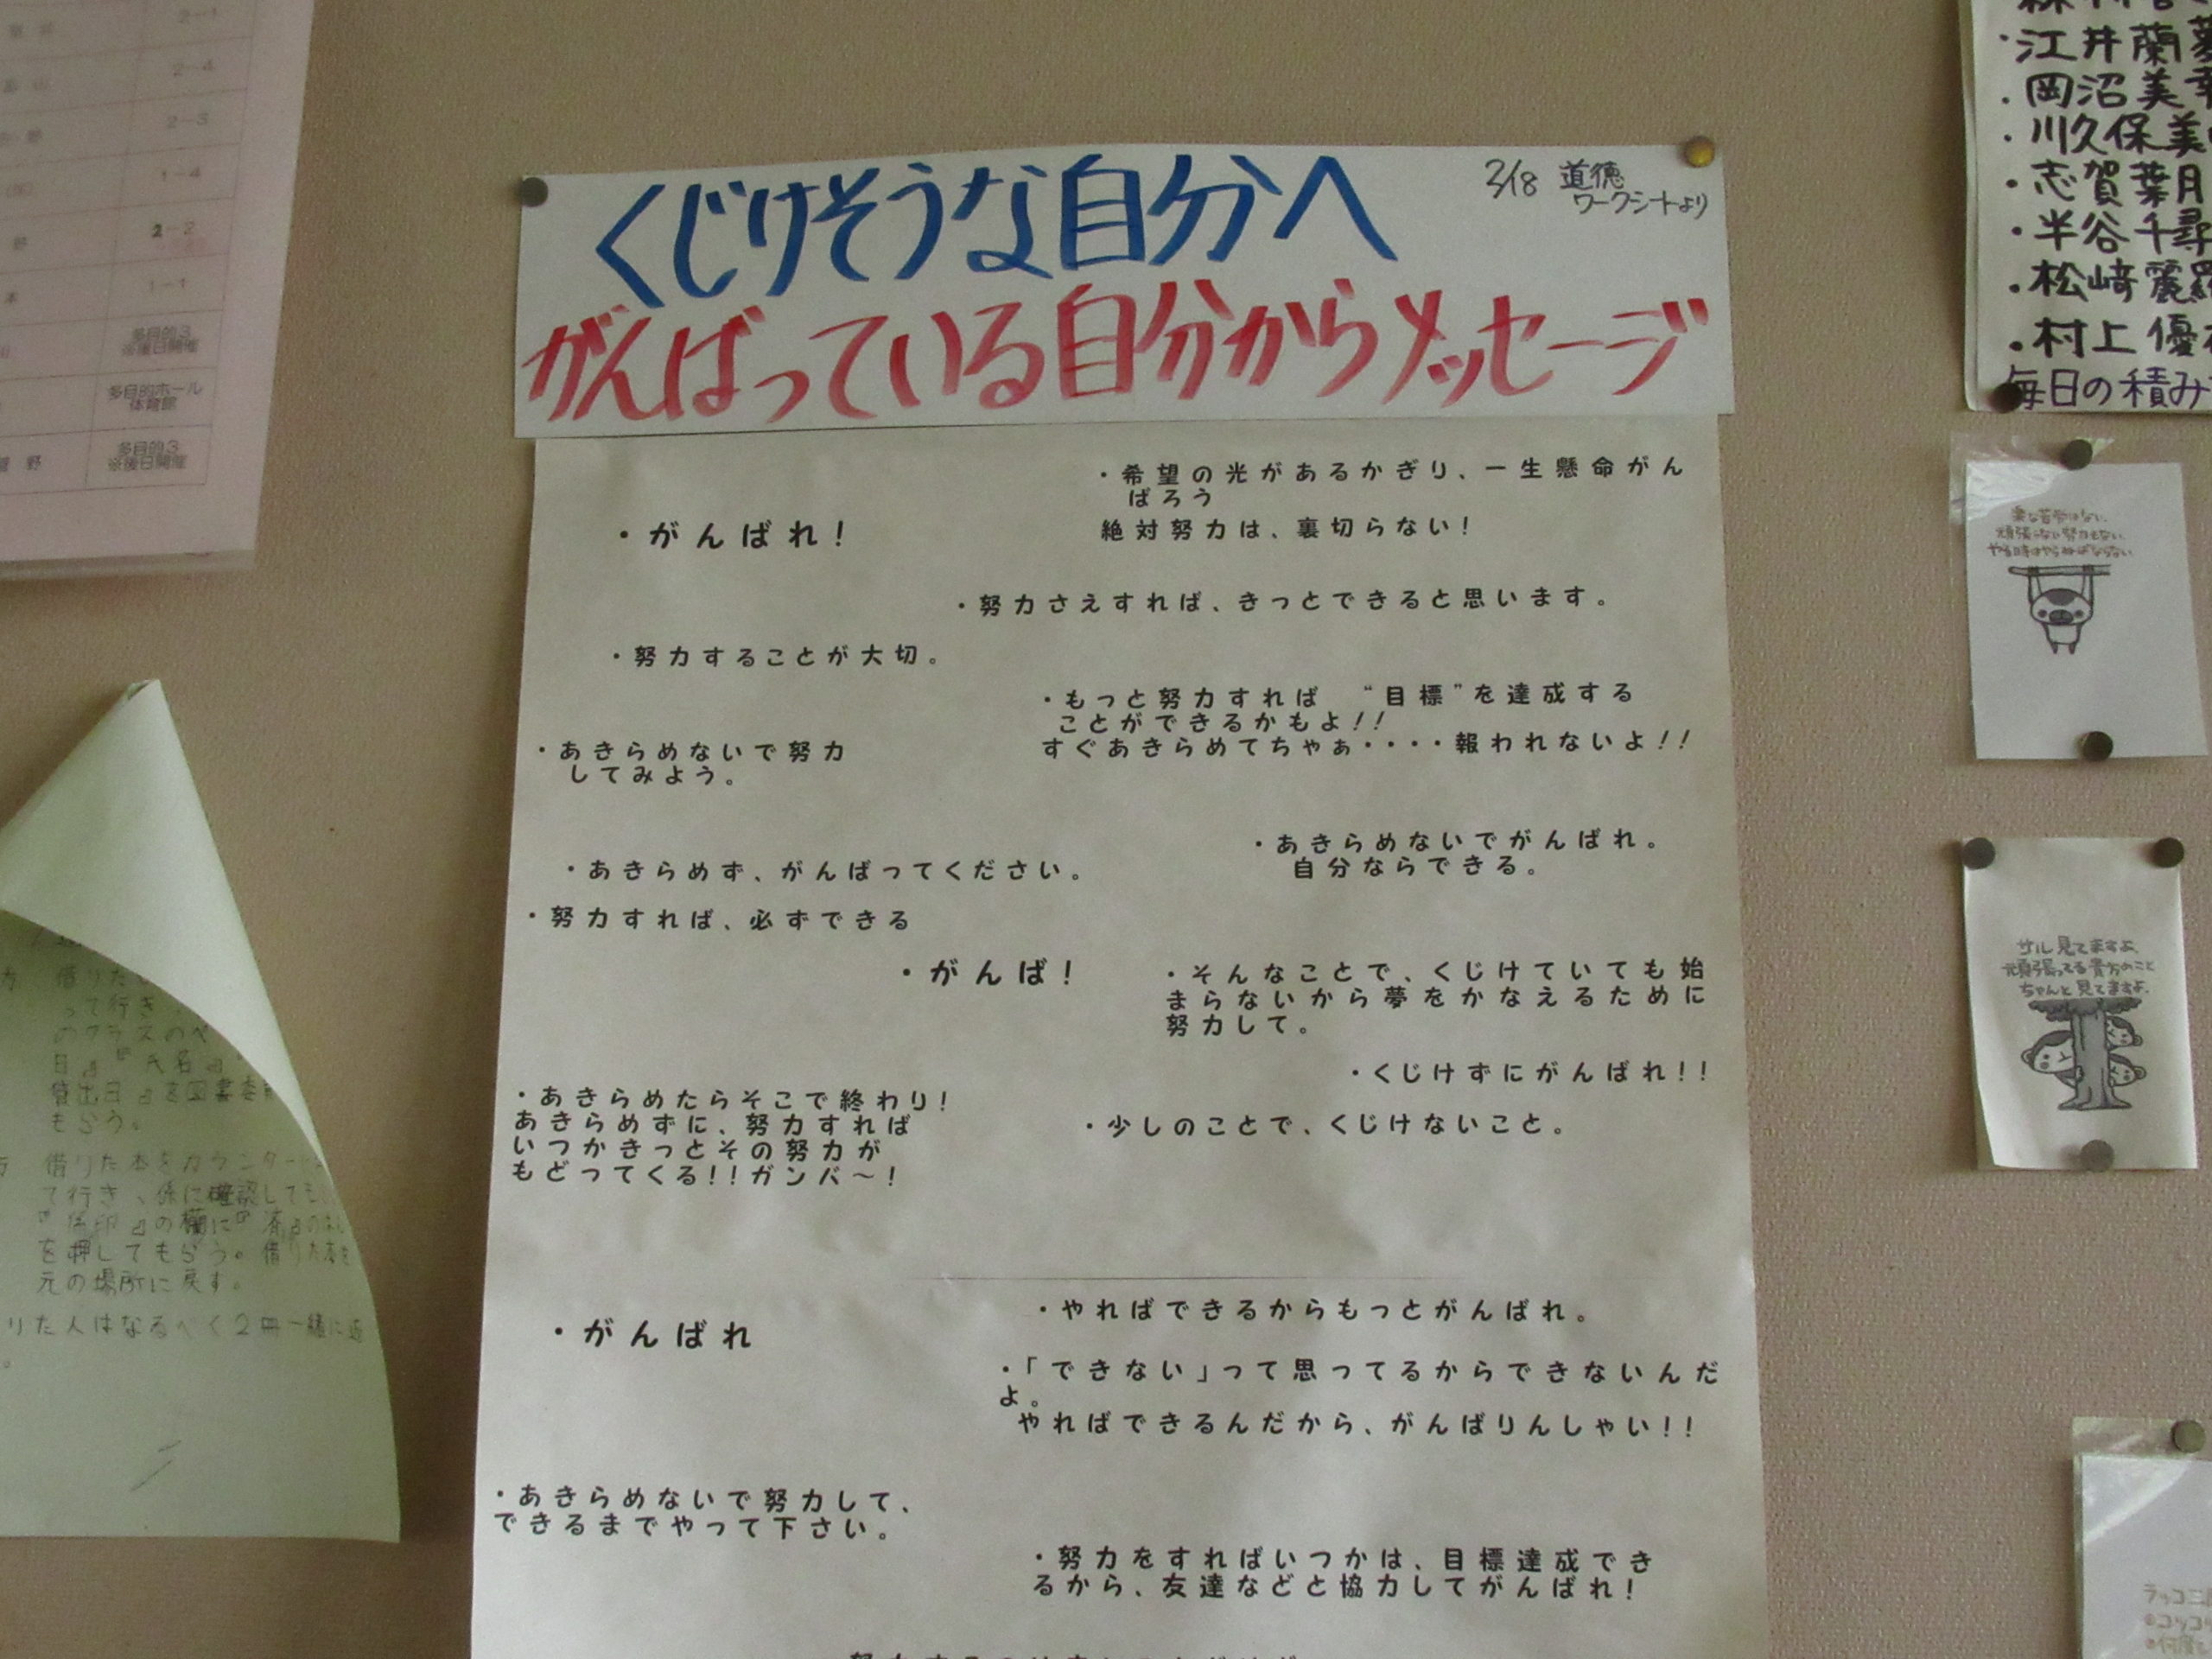 くじけそうな自分へ
3/18 道徳
ワークシートより
がんばっている自分からメッセージ
・希望の光があるかぎり、一生懸命がん
ばろう
絶対努力は、裏切らない！
・がんばれ！
・努力さえすれば、きっとできると思います。
・努力することが大切。
・もっと努力すれば “目標”を達成する
ことができるかもよ！！
すぐあきらめてちゃぁ・・・・報われないよ！！
・あきらめないで努力
してみよう。
・あきらめないでがんばれ。
自分ならできる。
・あきらめず、がんばってください。
・努力すれば、必ずできる
・がんば！
・そんなことで、くじけていても始
まらないから夢をかなえるために
努力して。
・くじけずにがんばれ！！
・あきらめたらそこで終わり！
あきらめずに、努力すれば
いつかきっとその努力が
もどってくる！！ガンバ～！
・少しのことで、くじけないこと。
・やればできるからもっとがんばれ。
・がんばれ
・「できない」って思ってるからできないんだ
よ。
やればできるんだから、がんばりんしゃい！！
・あきらめないで努力して、
できるまでやって下さい。
・努力をすればいつかは、目標達成でき
るから、友達などと協力してがんばれ！
2-1
2-4
2-3
1-4
2-2
1-1
多目的3
※後日開催
多目的ホール
体育館
多目的3
※後日開催
借りた
って行き
のクラスのペ
日』『氏名』
貸出日』を図書委
もらう。
借りた本をカウンター
て行き、係に確認しても
の欄に『済』の
を押してもらう。借りた本を
元の場所に戻す。
りた人はなるべく2冊一緒に
・江井蘭
・岡沼美
・川久保美
・志賀葉月
・半谷千尋
・松﨑麗
・村上優
毎日の積み
楽な苦労はない、
頑張らない努力もない、
やる時はやらねばならない
サル見てますよ、
頑張ってる貴方のこと
ちゃんと見てますよ。
ラッコ三
コツコツ